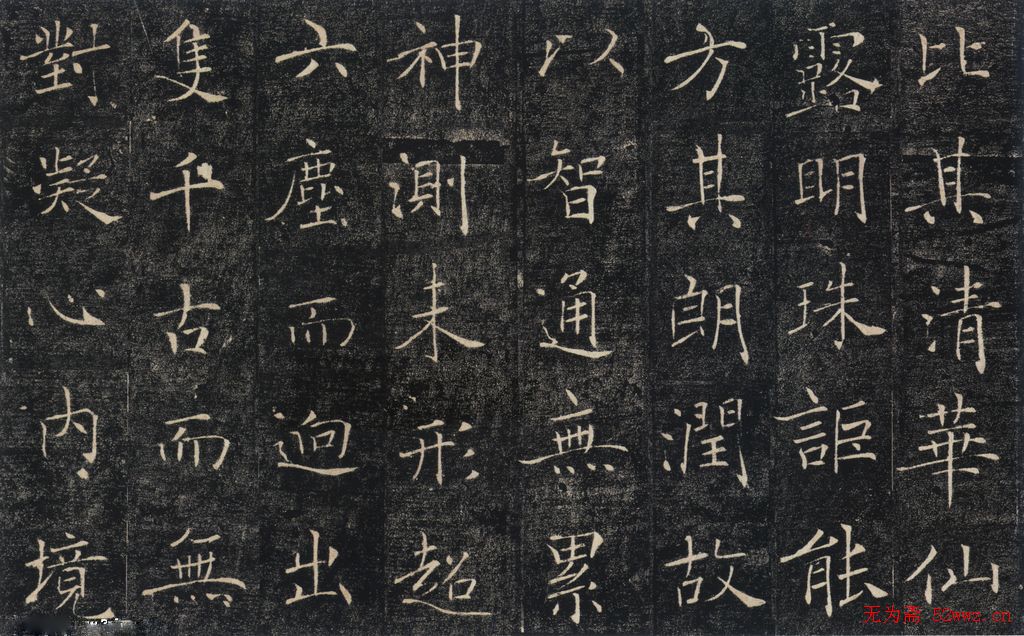 比其清華仙
露明珠詎能
方其朗潤故
以智通無累
神測未形超
六塵而逈出
隻千古而無
對凝心內境
无为斋 52wwz.cn